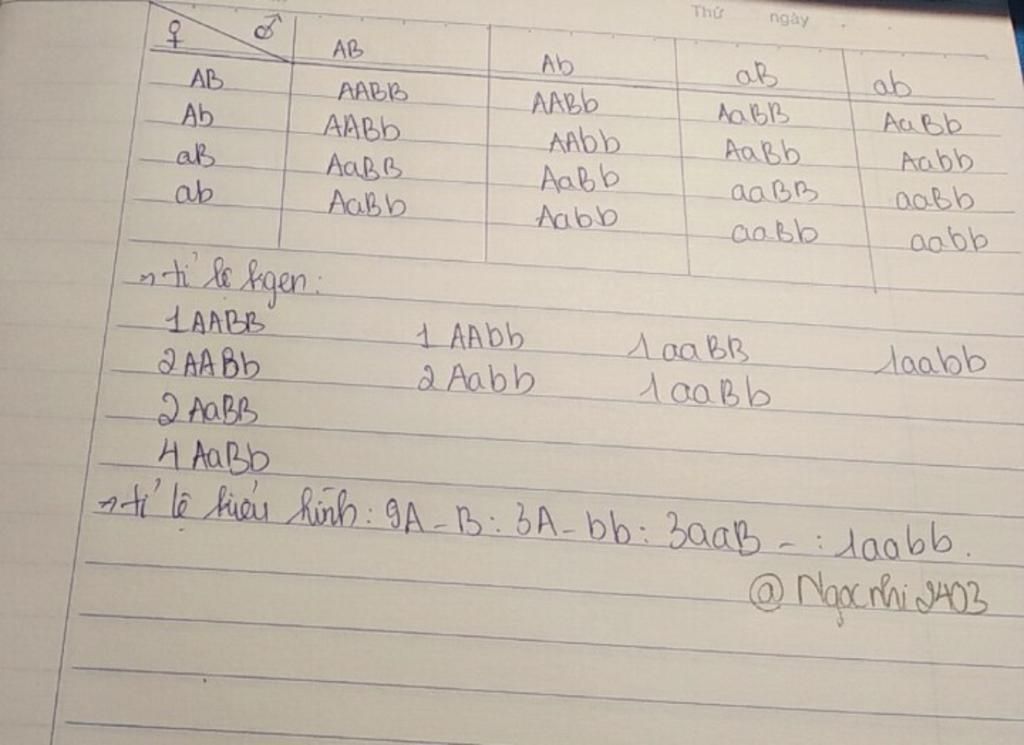 Thứ ngày
♀ ♂ AB Ab aB ab
AB AABB AABb AaBB AaBb
Ab AABb AAbb AaBb Aabb
aB AaBB AaBb aaBB aaBb
ab AaBb Aabb aaBb aabb
→ tỉ lệ kgen:
1AABB 1AAbb 1aaBB 1aabb
2AABb 2Aabb 1aaBb
2AaBB
4AaBb
→ tỉ lệ kiểu hình: 9A-B: 3A-bb: 3aaB-: 1aabb.
@Ngocnhi2403